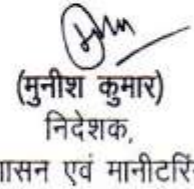 (मुनीश कुमार)
निदेशक,
ासन एवं मानीटरिं